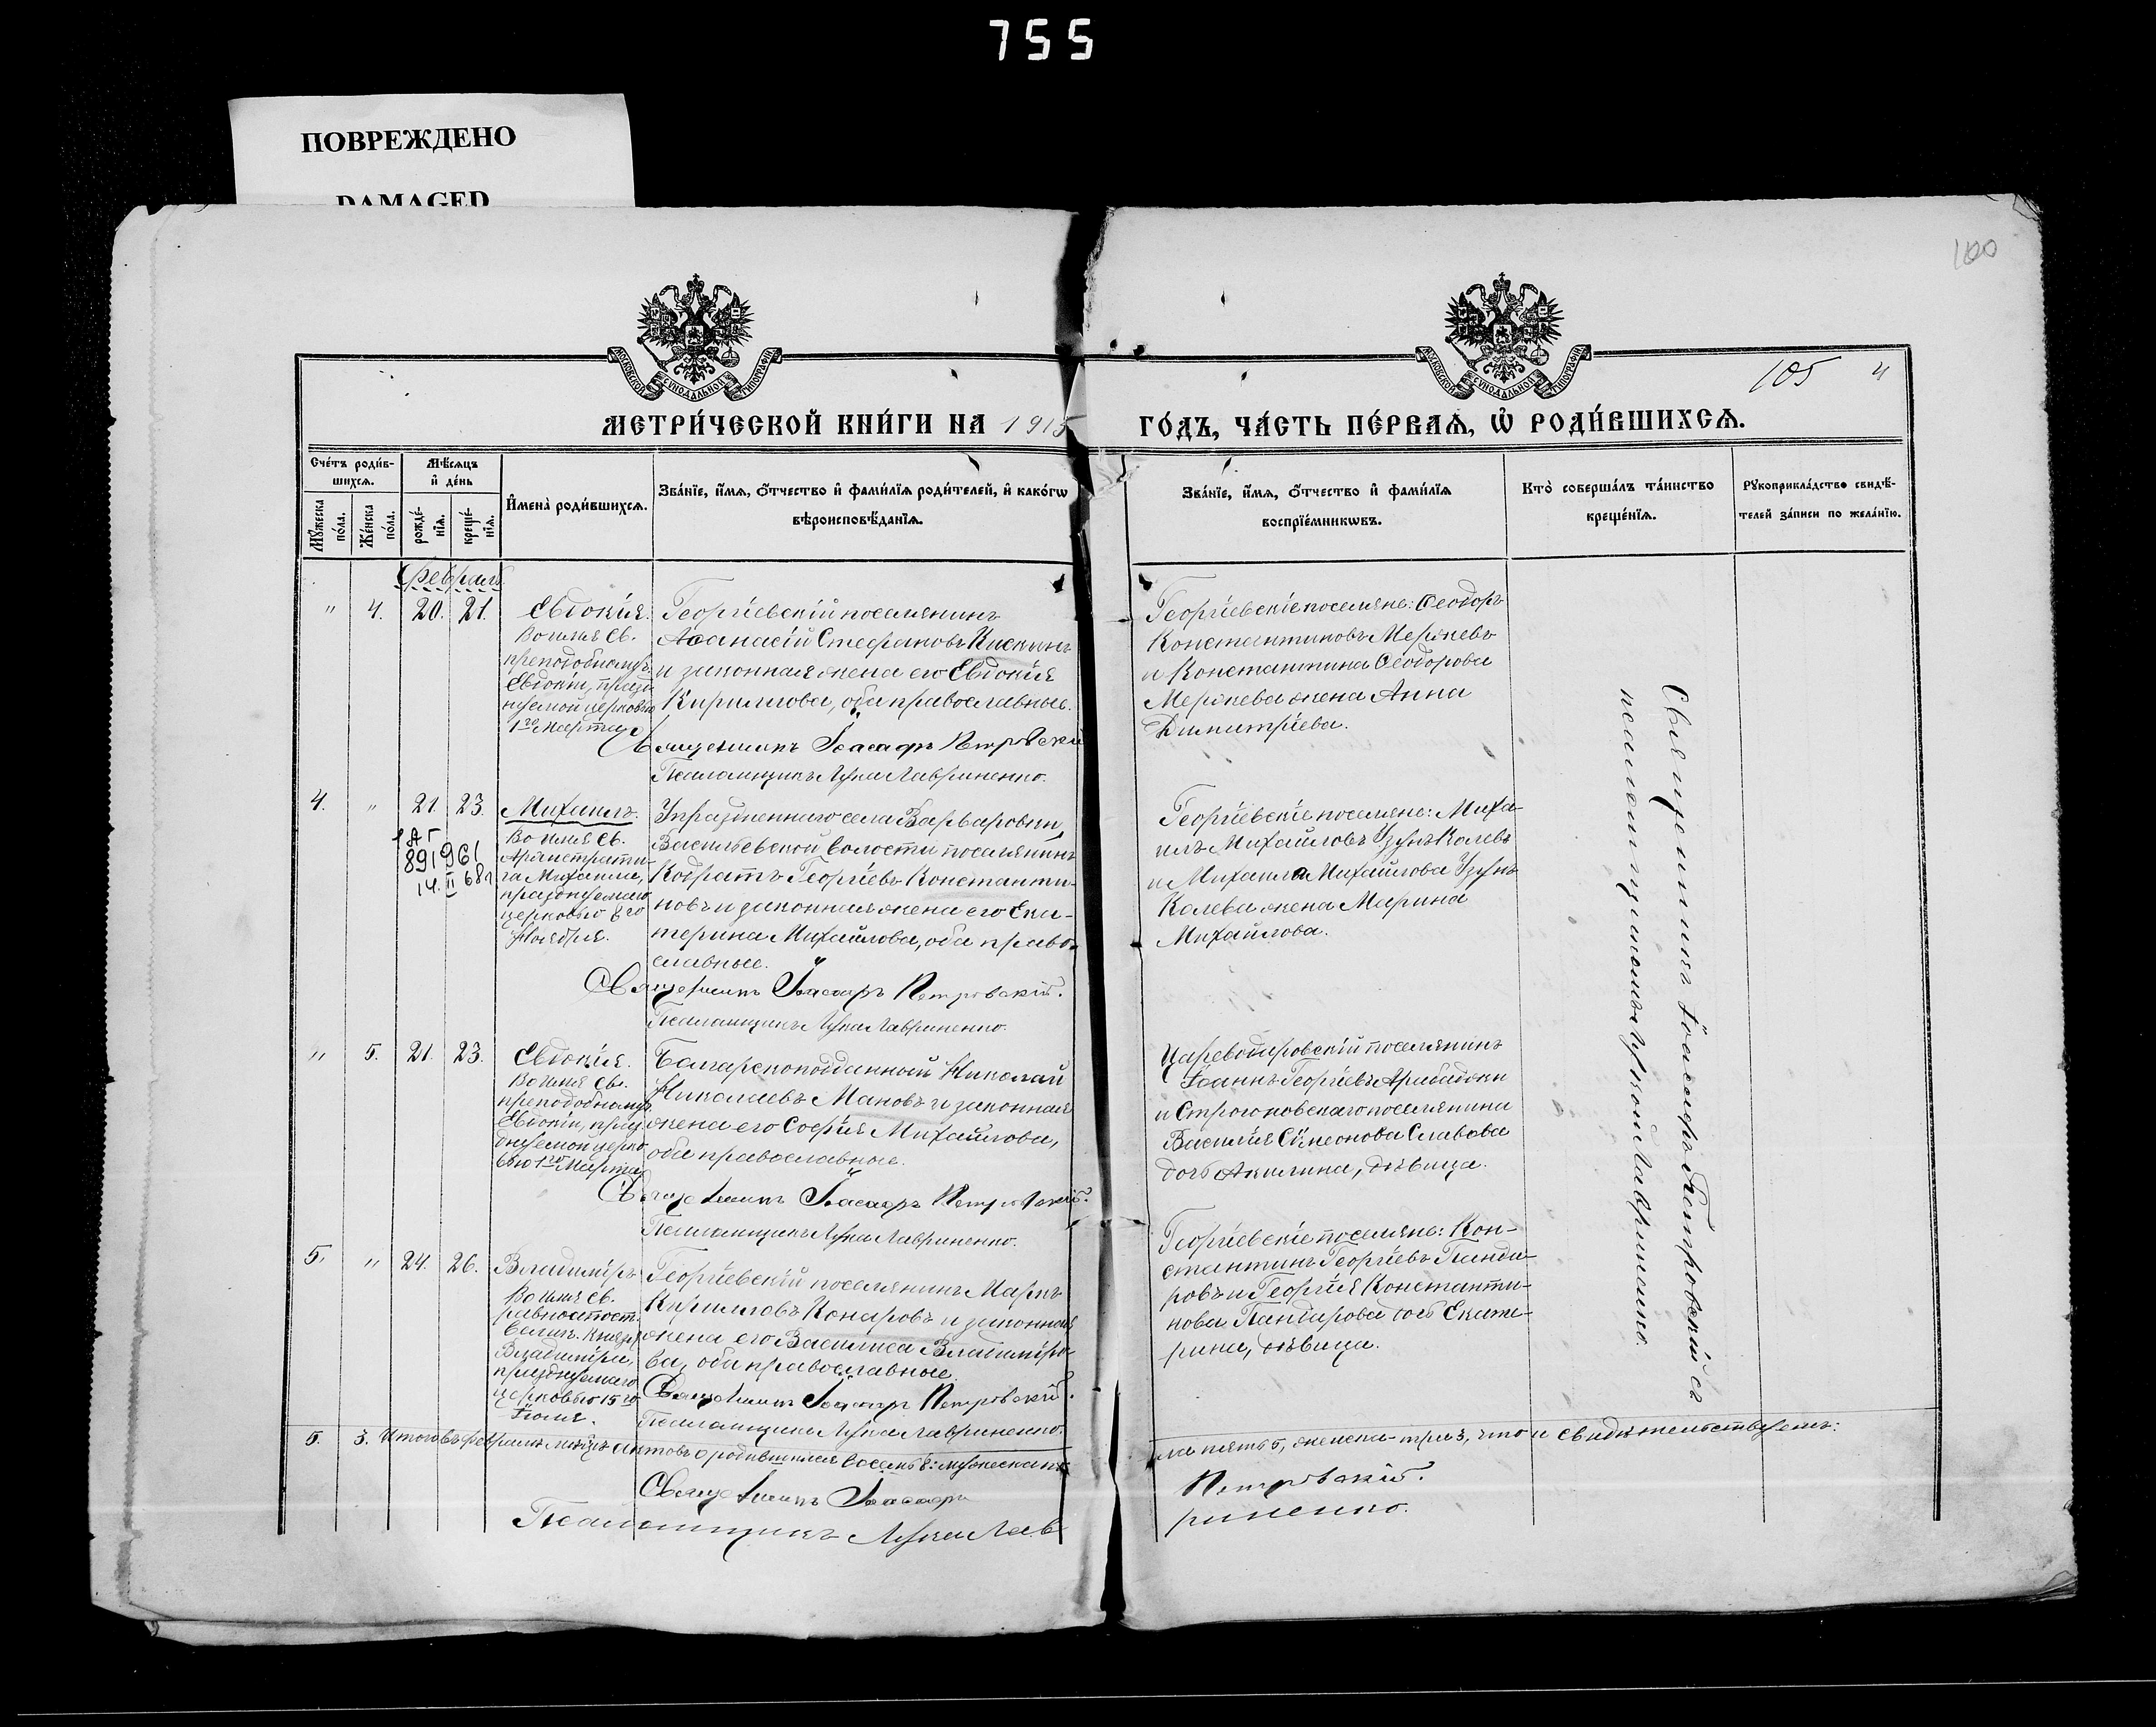 755
ПОВРЕЖДЕНО
DAMAGED
100
105 4
МОСКОВСКОЙ СѴНОДАЛЬНОЙ ТИПОГРАФІИ
МОСКОВСКОЙ СѴНОДАЛЬНОЙ ТИПОГРАФІИ
МЕТРИ́ЧЕСКОЙ КНИ́ГИ НА 1915 ГО́ДЪ, ЧА́СТЬ ПЕ́РВАѦ, Ѡ҆ РОДИ́ВШИХСѦ.
Сче́тъ роди́в-
шихсѧ.
Мѣ́сѧцъ
и҆ де́нь
Мꙋ́жеска по́ла.
Же́нска по́ла.
рожде́-
нїѧ.
креще́-
нїѧ.
И҆мена̀ роди́вшихсѧ.
Зва́нїе, и҆́мѧ, ѻ҆́тчество и҆ фами́лїѧ роди́телей, и҆ како́гѡ
вѣроисповѣ́данїѧ.
Зва́нїе, и҆́мѧ, ѻ҆́тчество и҆ фами́лїѧ
воспрїе́мникѡвъ.
Кто̀ соверша́лъ та́инство
креще́нїѧ.
Рꙋкоприкла́дство свидѣ́-
телей за́писи по жела́нїю.
Февраль.
" 4. 20. 21.
Евдокія.
Во имя св.
преподобномуч.
Евдокіи, празд-
нуемой церковію
1го Марта
Георгіевскій поселянинъ
Аѳанасій Стефановъ
и законная жена его Евдокія
Кириллова, оба православные.
Священникъ Іоасафъ Петровскій
Псаломщикъ Лука Лавриненко.
Георгіевскіе поселяне: Ѳеодоръ
Константиновъ Мержевъ
и Константина Ѳеодорова
Мержева жена Анна
Димитріева.
4. " 21. 23.
1АГ
891961
14. II 68
Михаилъ.
Во имя св.
Архистрати-
га Михаила,
празднуемаго
церковью 8го
Ноября.
Упраздненнаго села Варваровки,
Васильевской волости поселянинъ
Кодратъ Георгіевъ Константи-
новъ и законная жена его Ека-
терина Михайлова, оба право-
славные.
Священникъ Іоасафъ Петровскій.
Псаломщикъ Лука Лавриненко.
Георгіевскіе поселяне: Миха-
илъ Михайловъ Узунъ Колевъ
и Михаила Михайлова Узунъ
Колева жена Марина
Михайлова.
" 5. 21. 23.
Евдокія.
Во имя св.
преподобномуч.
Евдокіи, праз-
днуемой церко-
вью 1го Марта
Болгарскоподданный Николай
Николаевъ Мановъ и законная
жена его Софія Михайлова,
оба православные.
Священникъ Іоасафъ Петровскій.
Псаломщикъ Лука Лавриненко.
Цареводаровскій поселянинъ
Іоаннъ Георгіевъ Арабаджи
и Строгоновскаго поселянина
Василія Сѵмеонова Славова
дочь Акилина, дѣвица.
5. " 24. 26.
Владиміръ
Во имя св.
равноапост.
Велик. Князя
Владиміра,
празднуемаго
церковью 15го
Іюля.
Георгіевскій поселянинъ Маркъ
Кирилловъ Конаровъ и законная
жена его Василиса Владиміро-
ва, оба православные.
Священникъ Іоасафъ Петровскій.
Псаломщикъ Лука Лавриненко.
Георгіевскіе поселяне: Кон-
стантинъ Георгіевъ Панда-
ровъ и Георгія Константи-
нова Пандарова дочь Екате-
рина, дѣвица.
Священникъ Іоасафъ Петровскій съ
псаломщикомъ Лукою Лавриненко.
5. 3. Итого въ февралѣ мѣсяцѣ актовъ о родившихся восемь 8: мужеска по-
ла пять 5, женска-три 3, что и свидѣтельствуемъ:
Священникъ Іоасафъ Петровскій.
Псаломщикъ Лука Лавриненко.